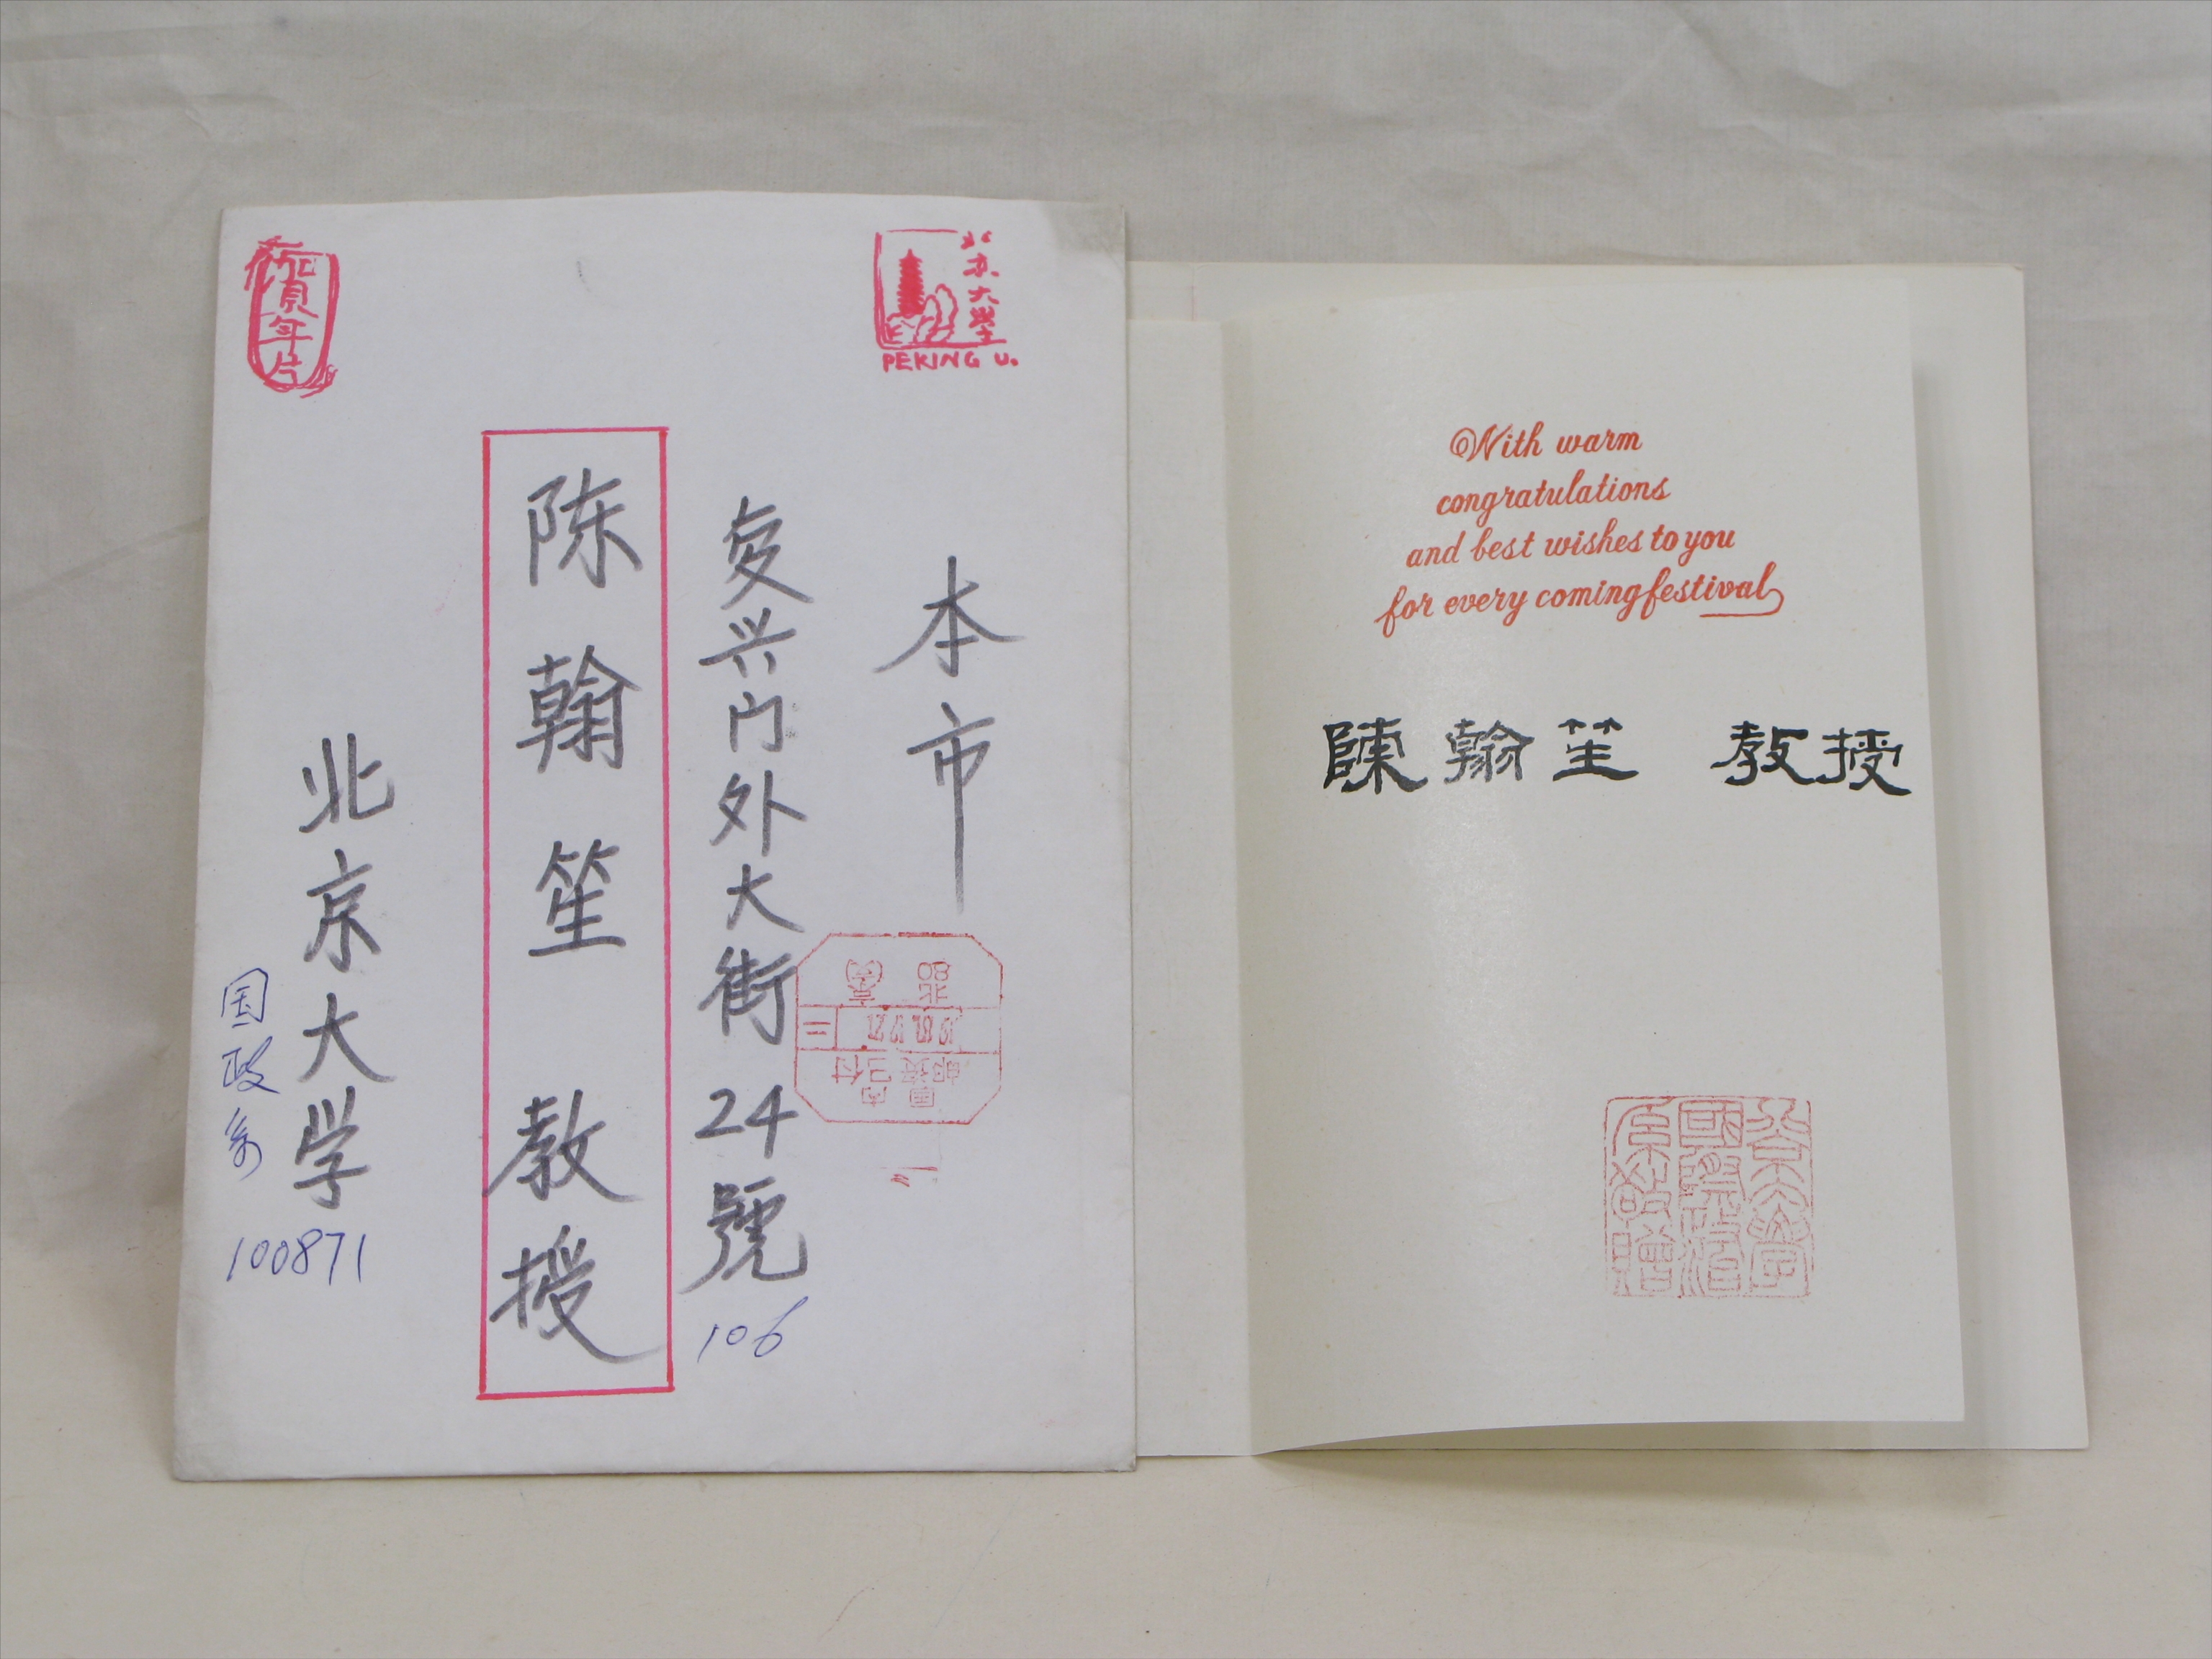 賀年片
北京大學
PEKING U.
本市
复兴门外大街24號
106
陈翰笙 教授
北京大学
国政系
100871
北京
国内
邮资已付
With warm
congratulations
and best wishes to you
for every coming festival
陳翰笙 教授
北京大學
國際政治
系敬贈